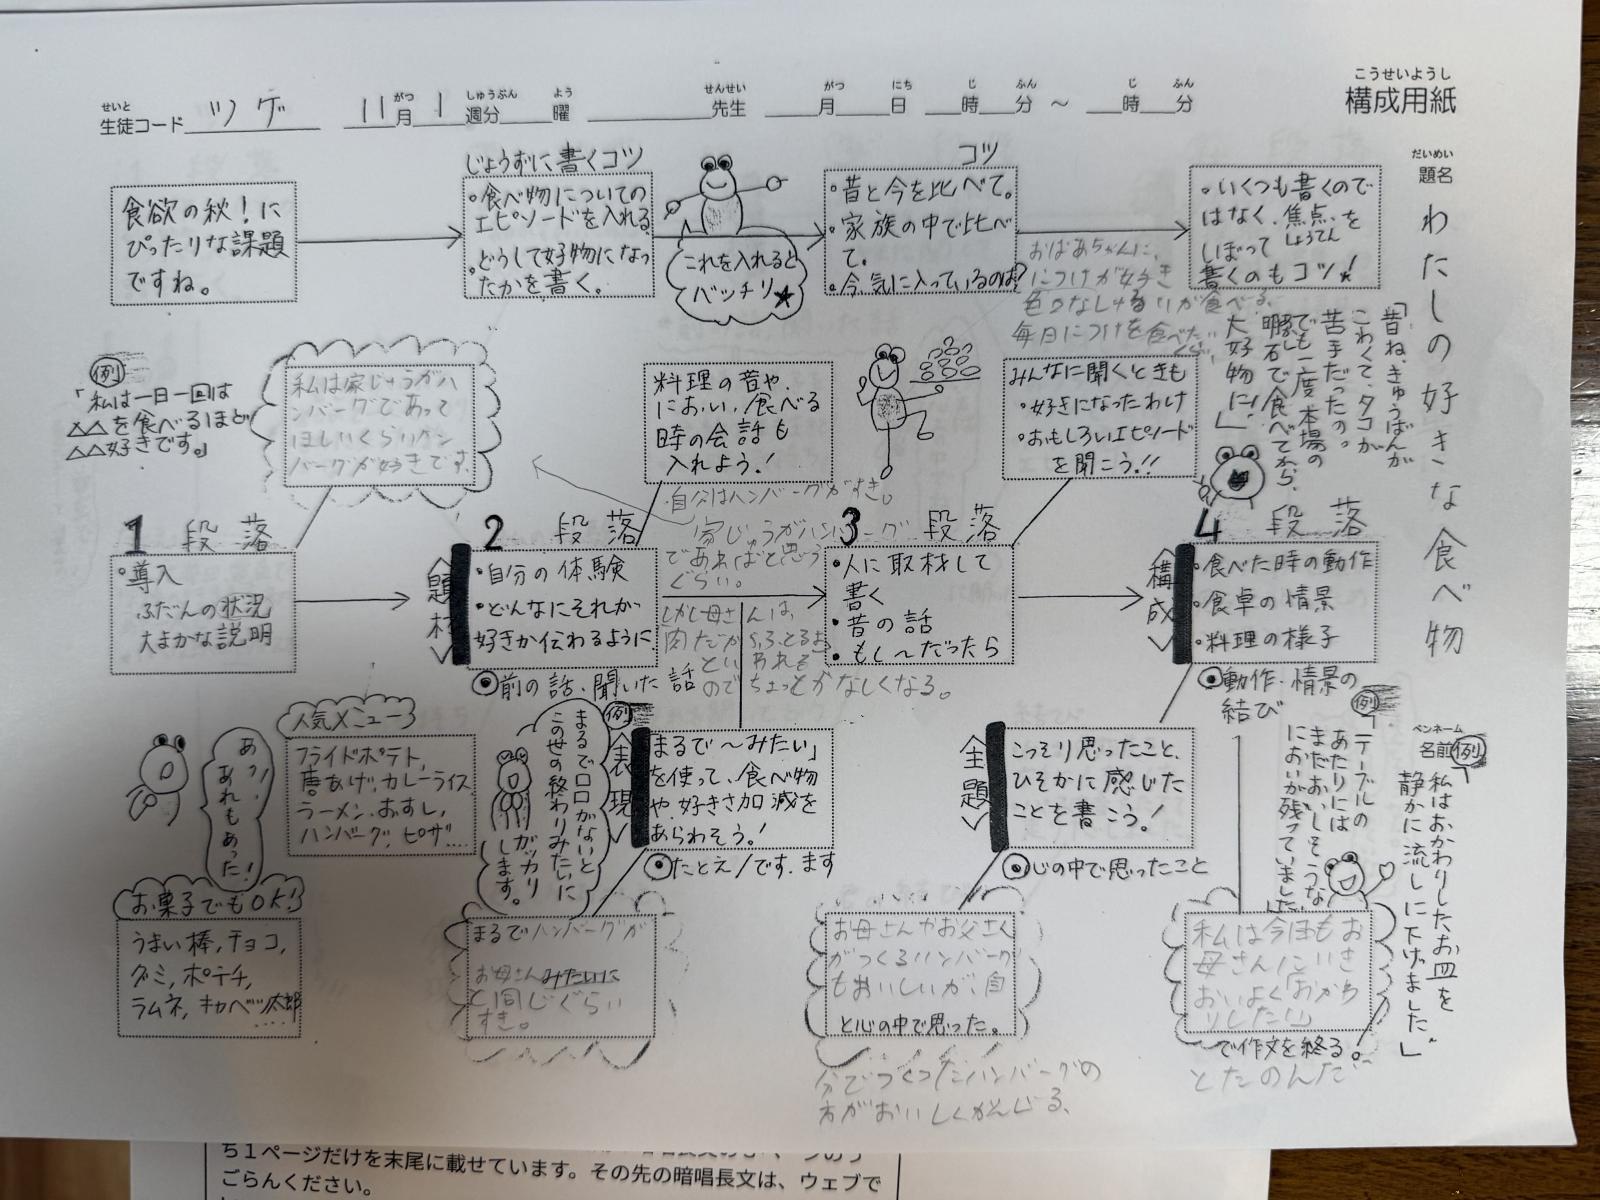 こうせいようし
構成用紙
せいと がつ しゅうぶん よう せんせい がつ にち じ ふん じ ふん
生徒コード ツゲ 11月1週分 曜 先生 月 日 時 分 ～ 時 分
だいめい
題名 わたしの好きな食べ物
ペンネーム
名前
食欲の秋！に
ぴったりな課題
ですね。
じょうずに書くコツ
・食べ物についての
エピソードを入れる。
・どうして好物になっ
たかを書く。
これを入れると
バッチリ★
コツ
・昔と今を比べて。
・家族の中で比べ
て。
・今、気に入っているのは？
・いくつも書くので
はなく、焦点を
しょうてん
しぼって
書くのもコツ！
おばあちゃんに、
につけが好き
色々なしゅるいが食べる、
毎日につけを食べた
「昔ね、きゅうばんが
こわくて、タコが
苦手だったの。
でも一度本場の
明石で食べてから、
大好物に！」
例
「私は一日一回は
△△を食べるほど
△△好きです。」
私は家じゅうがハ
ンバーグであって
ほしいくらいハン
バーグが好きです。
料理の音や、
におい、食べる
時の会話も
入れよう！
みんなに聞くときも
・好きになったわけ
・おもしろいエピソード
を聞こう！！
・自分はハンバーグがすき。
家じゅうがハンバーグ
であればと思う
ぐらい。
しかし母さんは、
肉だからふとるよ
といわれる
のでちょっとかなしくなる。
1 段落
・導入
ふだんの状況
大まかな説明
2 段落
題材
・自分の体験
・どんなにそれが
好きか伝わるように
◉前の話、聞いた話
3 段落
・人に取材して
書く
・昔の話
・もし～だったら
4 段落
構成
・食べた時の動作
・食卓の情景
・料理の様子
◉動作・情景の
結び
人気メニュー
フライドポテト、
唐あげ、カレーライス
ラーメン、おすし、
ハンバーグ、ピザ…
あっ！
あれもあった！
お菓子でもOK！
うまい棒、チョコ、
グミ、ポテチ、
ラムネ、キャベツ太郎
……
例
まるで口口がないと
この世の終わりみたいに
ガッカリ
します。
表現
「まるで～みたい」
を使って、食べ物
や、好きさ加減を
あらわそう！
◉たとえ／です、ます
まるでハンバーグが
お母さんみたいに
と同じぐらい
すき。
主題
こっそり思ったこと、
ひそかに感じた
ことを書こう！
◉心の中で思ったこと
お母さんやお父さん
がつくるハンバーグ
もおいしいが、自
と心の中で思った。
分でつくったハンバーグの
方がおいしくかんじる、
例
「テーブルの
あたりには
まだおいしそうな
においが残っていました。」
例
「私はおかわりしたお皿を
静かに流しに下げました。」
私は今日もお
母さんにいき
おいよく「おかわ
りしたい」
で作文を終る。
とたのんだ
ち１ページだけを末尾に載せています。その先の暗唱長文は、ウェブで
ごらんください。